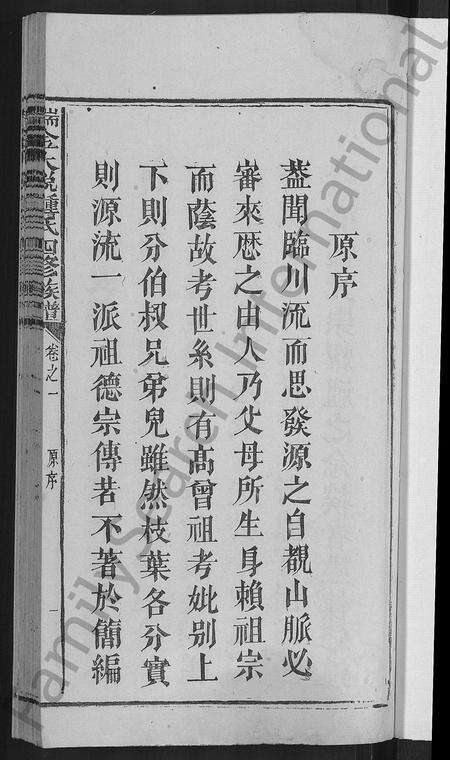 原序
蓋聞臨川流而思發源之自覩山脈必
審來歷之由人乃父母所生身賴祖宗
而蔭故考世系則有高曾祖考妣別上
下則分伯叔兄弟兒雖然枝葉各分實
則源流一派祖德宗傳若不著於簡編
瑞金大硯鍾氏四修族譜
卷之一
原序
一
FamilySearch International